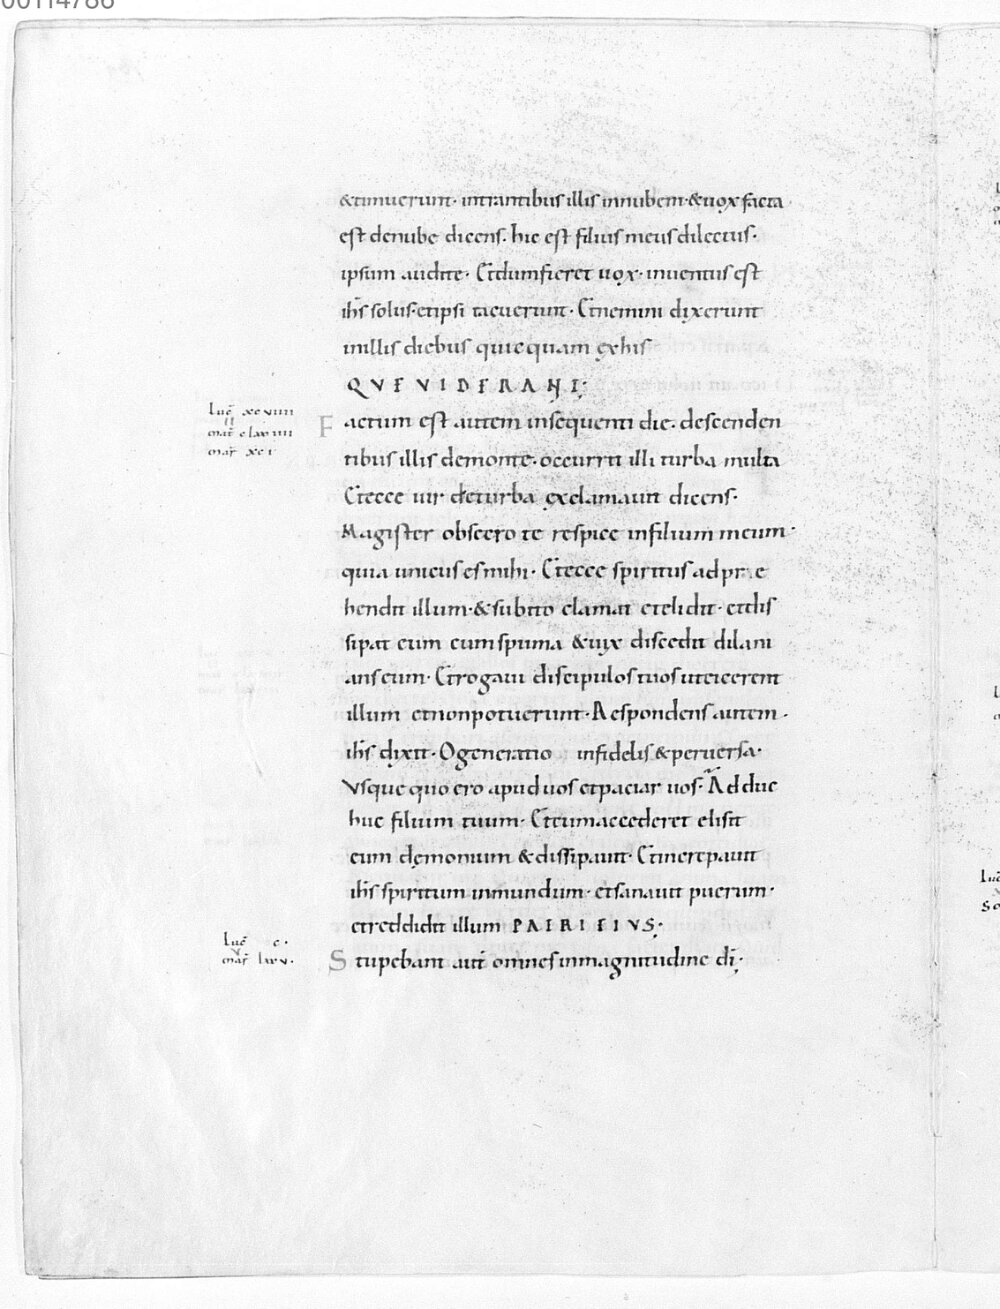 00114786
&timuerunt· intrantibus illis innubem·&uox facta
est denube dicens· hic est filius meus dilectus·
ipsum audite· Et dumfieret uox· inuentus est
ihs̄ solus·et ipsi tacuerunt· Et nemini dixerunt
inillis diebus quicquam exhis
QUE UIDERANT:
Luc̄ xcviiii
II
mat̄ clxxiiii
mar̄ xci
Factum est autem insequenti die· descenden
tibus illis demonte· occurrit illi turba multa
Et ecce uir deturba exclamauit dicens·
Magister obsecro te respice infilium meum·
quia unicus est mihi· Et ecce spiritus adprae
hendit illum·&subito clamat et elidit· et dis
sipat eum cum spuma &uix discedit dilani
ans eum· Et rogaui discipulos tuos ut eicerent
illum et non potuerunt· Respondens autem·
ihs̄ dixit· O generatio infidelis &peruersa·
Vsque quo ero apud uos et patiar uos· Adduc
huc filium tuum· Et cum accederet elisit
eum demonium &dissipauit· Et increpauit
ihs̄ spiritum inmundum· et sanauit puerum·
et reddidit illum PATRI EIUS·
Luc̄ c·
V
mat̄ lxxv·
Stupebant aut̄ omnes inmagnitudine dī·